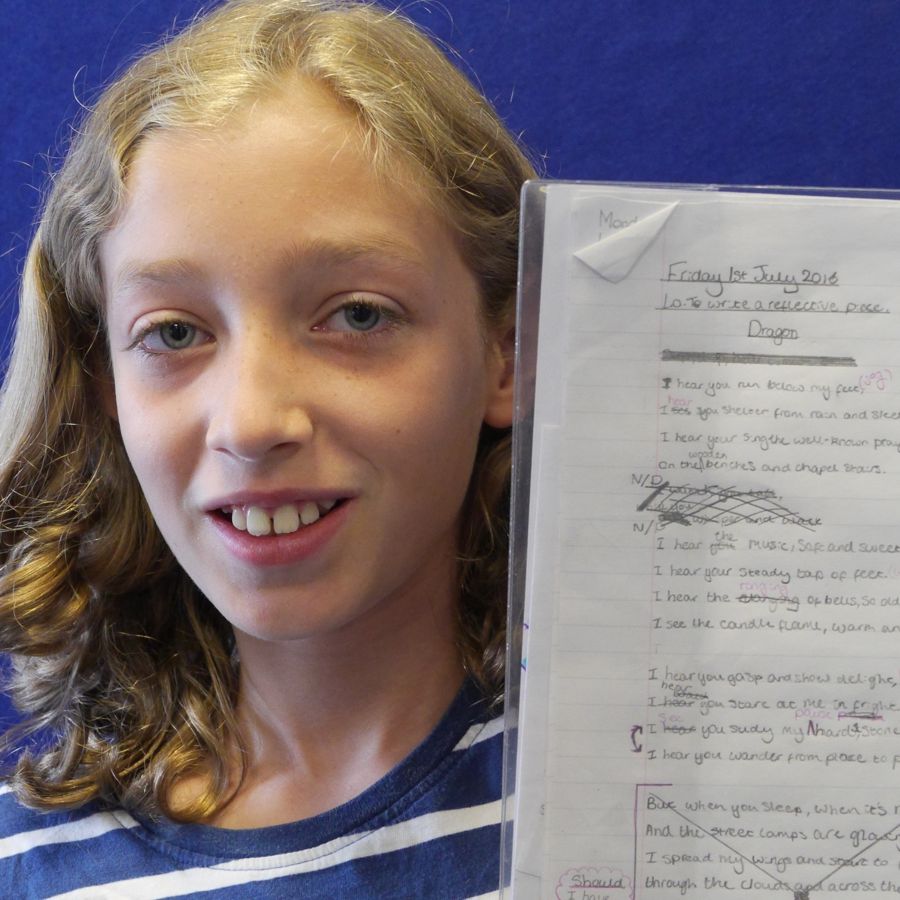 Mond
Friday 1st July 2016
Lo: To write a reflective piece.
Dragon
I hear you run below my feet, (joy)
hear
I see you shelter from rain and sleet
I hear your sing the well-known pray
wooden
on the benches and chapel stairs.
N/D
N/D and black
the
I hear you music, soft and sweet
I hear your steady tap of feet.
ringing
I hear the clanging of bells, so old
I see the candle flame, warm an
I hear you gasp and show delight,
hear
I hear you stare at me in fright
see pause
I hear you sudy my hard, stone
I hear you wander from place to p
But when you sleep, when it's n
And the street lamps are glowin
I spread my wings and start to
Should through the clouds and across the
I have